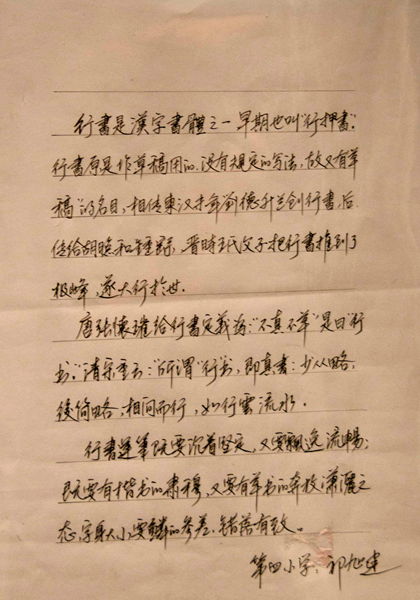 行書是漢字書體之一早期也叫"行押書"。
行書原是作草稿用的、没有規定的写法,故又有草
稿"的名目,相传東汉末年劉德升兰创行書,后
传给胡昭和鍾繇,晋時王氏父子把行書推到了
极峰,遂大行於世。
唐張懷瓘给行書定義為:"不真不草"是曰"行
书。"清宋曹云:"所谓"行书,即真書:少从略,
後简略,相间而行,如行雲流水。
行書運筆既要沉着坚定,又要飄逸流暢;
既要有楷书的肃穆,又要有草书的奔放潇灑之
态,字身大小要的参差、错落有致。
第四小学:祁旭建